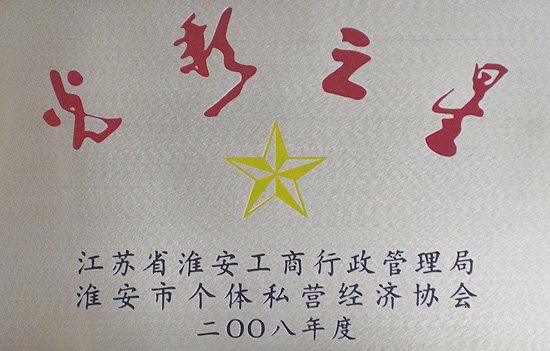 光彩之星
江苏省淮安工商行政管理局
淮安市个体私营经济协会
二OO八年度